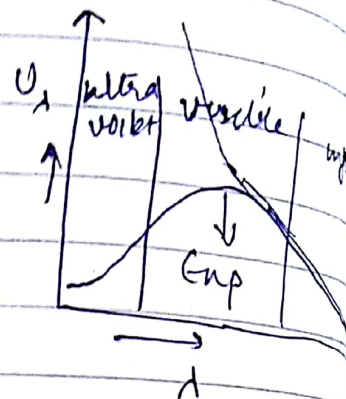 Uλ
ultra
voilet
visible
Exp
λ